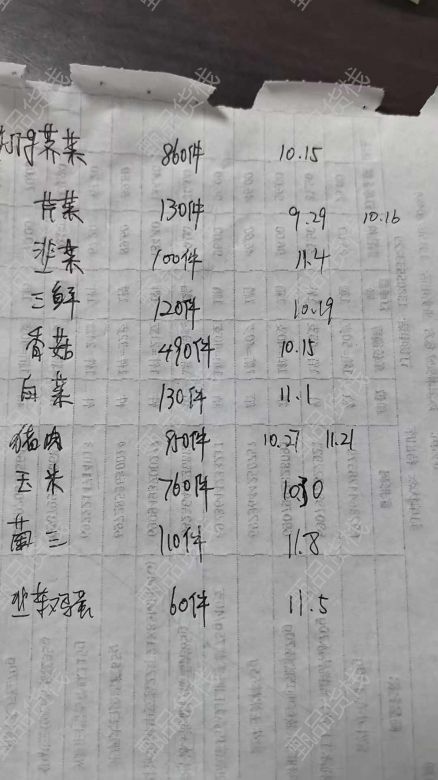 荠菜 860件 10.15
芹菜 130件 9.29 10.16
韭菜 100件 11.4
三鲜 120件 10.19
香菇 490件 10.15
白菜 130件 11.1
猪肉 950件 10.27 11.21
玉米 760件 10.30
菌三 110件 11.8
韭菜鸡蛋 60件 11.5
甄品货栈